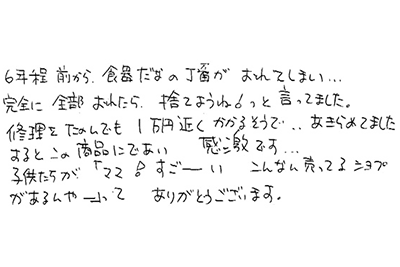 6年程 前から、食器だなの 丁番が おれてしまい...
完全に 全部 おれたら、捨てようね!っと 言ってました。
修理を たのんでも 1万円近く かかるそうで... あきらめてました
すると この 商品に であい 感激 です...
子供たちが 「ママ! すごーい こんなん 売ってる ショップ
があるんやー」って ありがとうございます。